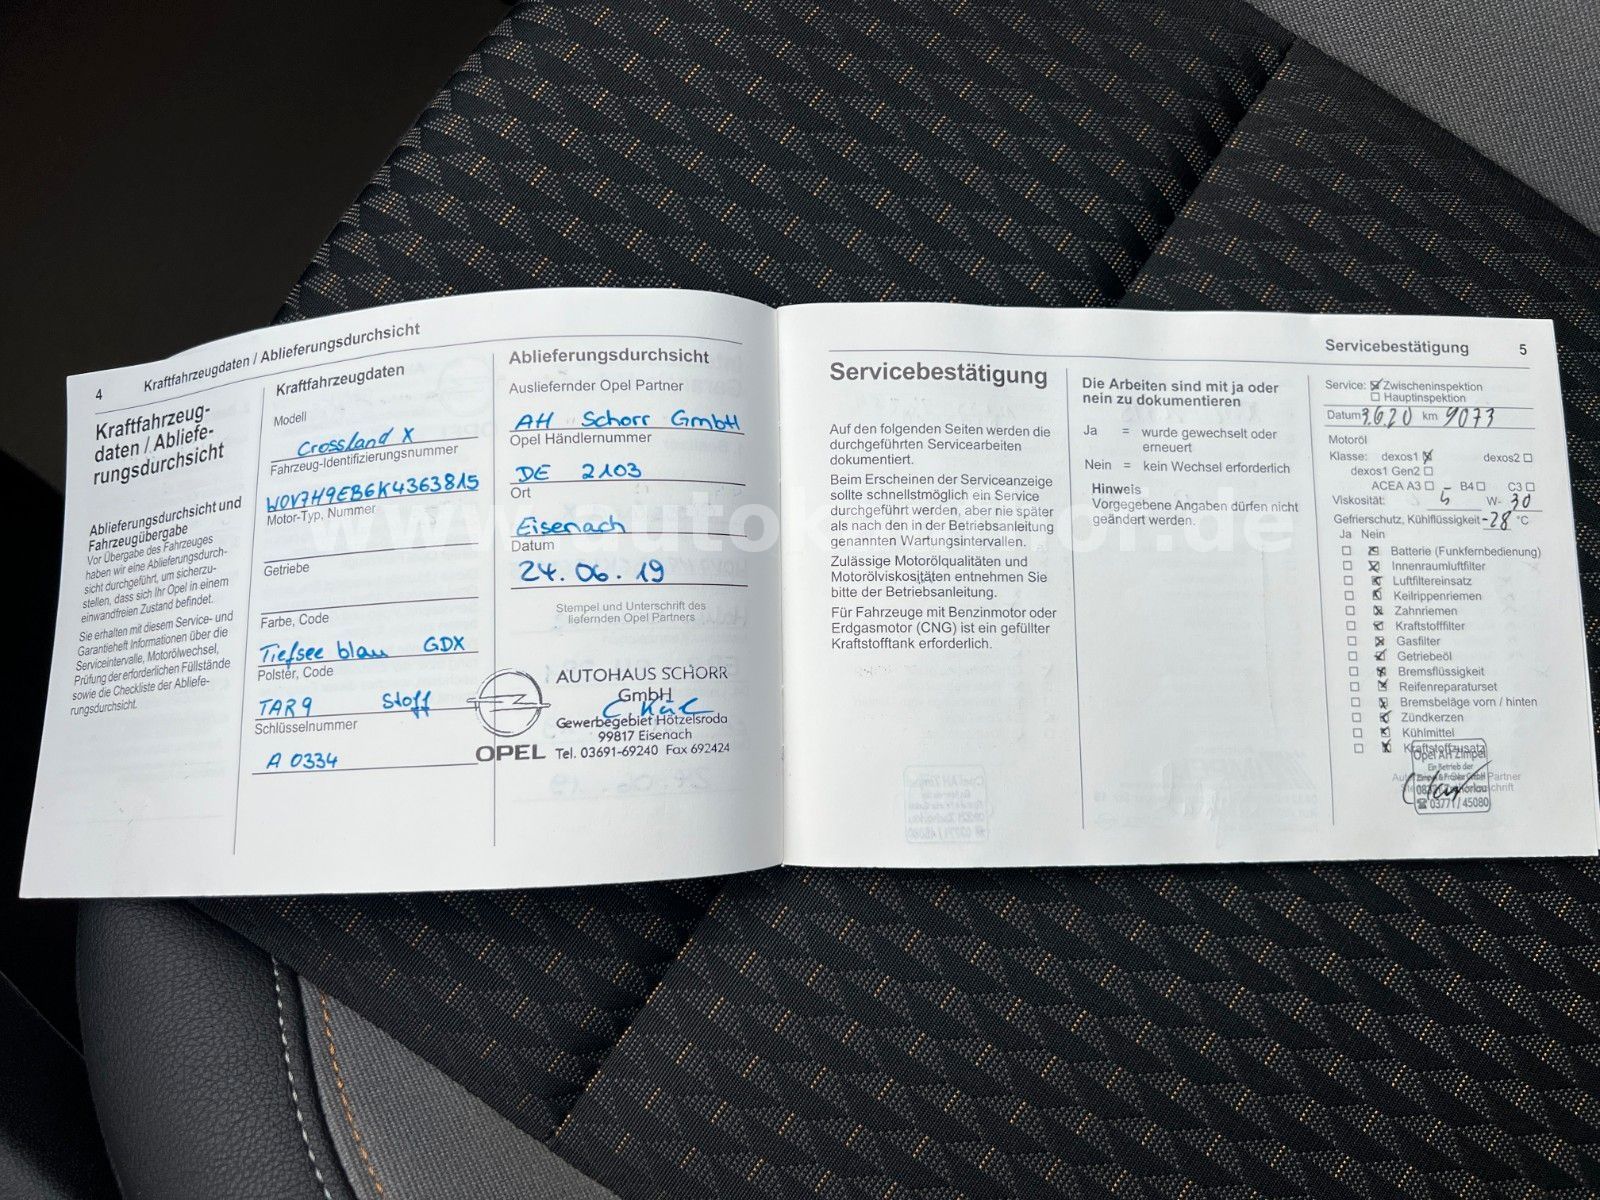 4 Kraftfahrzeugdaten / Ablieferungsdurchsicht
Kraftfahrzeug-
daten / Abliefe-
rungsdurchsicht
Ablieferungsdurchsicht und
Fahrzeugübergabe
Vor Übergabe des Fahrzeuges
haben wir eine Ablieferungsdurch-
sicht durchgeführt, um sicherzu-
stellen, dass sich Ihr Opel in einem
einwandfreien Zustand befindet.
Sie erhalten mit diesem Service- und
Garantieheft Informationen über die
Serviceintervalle, Motorölwechsel,
Prüfung der erforderlichen Füllstände
sowie die Checkliste der Abliefe-
rungsdurchsicht.
Kraftfahrzeugdaten
Modell
Crossland X
Fahrzeug-Identifizierungsnummer
W0V7H9EB6K4363815
Motor-Typ, Nummer
Getriebe
Farbe, Code
Tiefsee blau GDX
Polster, Code
TAR9 Stoff
Schlüsselnummer
A 0334
Ablieferungsdurchsicht
Ausliefernder Opel Partner
AH Schorr GmbH
Opel Händlernummer
DE 2103
Ort
Eisenach
Datum
24.06.19
Stempel und Unterschrift des
liefernden Opel Partners
OPEL
AUTOHAUS SCHORR
GmbH
Gewerbegebiet Hötzelsroda
99817 Eisenach
Tel. 03691-69240 Fax 692424
Servicebestätigung 5
Servicebestätigung
Auf den folgenden Seiten werden die
durchgeführten Servicearbeiten
dokumentiert.
Beim Erscheinen der Serviceanzeige
sollte schnellstmöglich ein Service
durchgeführt werden, aber nie später
als nach den in der Betriebsanleitung
genannten Wartungsintervallen.
Zulässige Motorölqualitäten und
Motorölviskositäten entnehmen Sie
bitte der Betriebsanleitung.
Für Fahrzeuge mit Benzinmotor oder
Erdgasmotor (CNG) ist ein gefüllter
Kraftstofftank erforderlich.
Die Arbeiten sind mit ja oder
nein zu dokumentieren
Ja = wurde gewechselt oder
erneuert
Nein = kein Wechsel erforderlich
Hinweis
Vorgegebene Angaben dürfen nicht
geändert werden.
Service: Zwischeninspektion
Hauptinspektion
Datum 3.6.20 km 9073
Motoröl
Klasse: dexos1 dexos2
dexos1 Gen2
ACEA A3 B4 C3
Viskosität: 5 W- 30
Gefrierschutz, Kühlflüssigkeit -28 °C
Ja Nein
Batterie (Funkfernbedienung)
Innenraumluftfilter
Luftfiltereinsatz
Keilrippenriemen
Zahnriemen
Kraftstofffilter
Gasfilter
Getriebeöl
Bremsflüssigkeit
Reifenreparaturset
Bremsbeläge vorn / hinten
Zündkerzen
Kühlmittel
Kraftstoffzusatz
Opel AH Zimpel
Ein Betrieb der
Partner
03771 / 45080